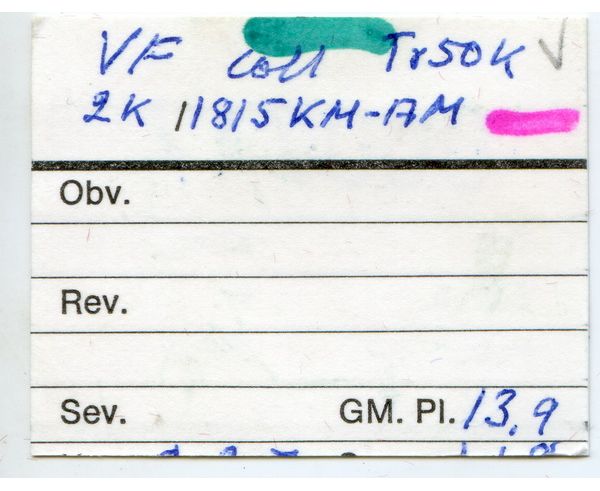 VF coll Tr50K
2K 1815KM-AM
Obv.
Rev.
Sev. GM. Pl. 13,9